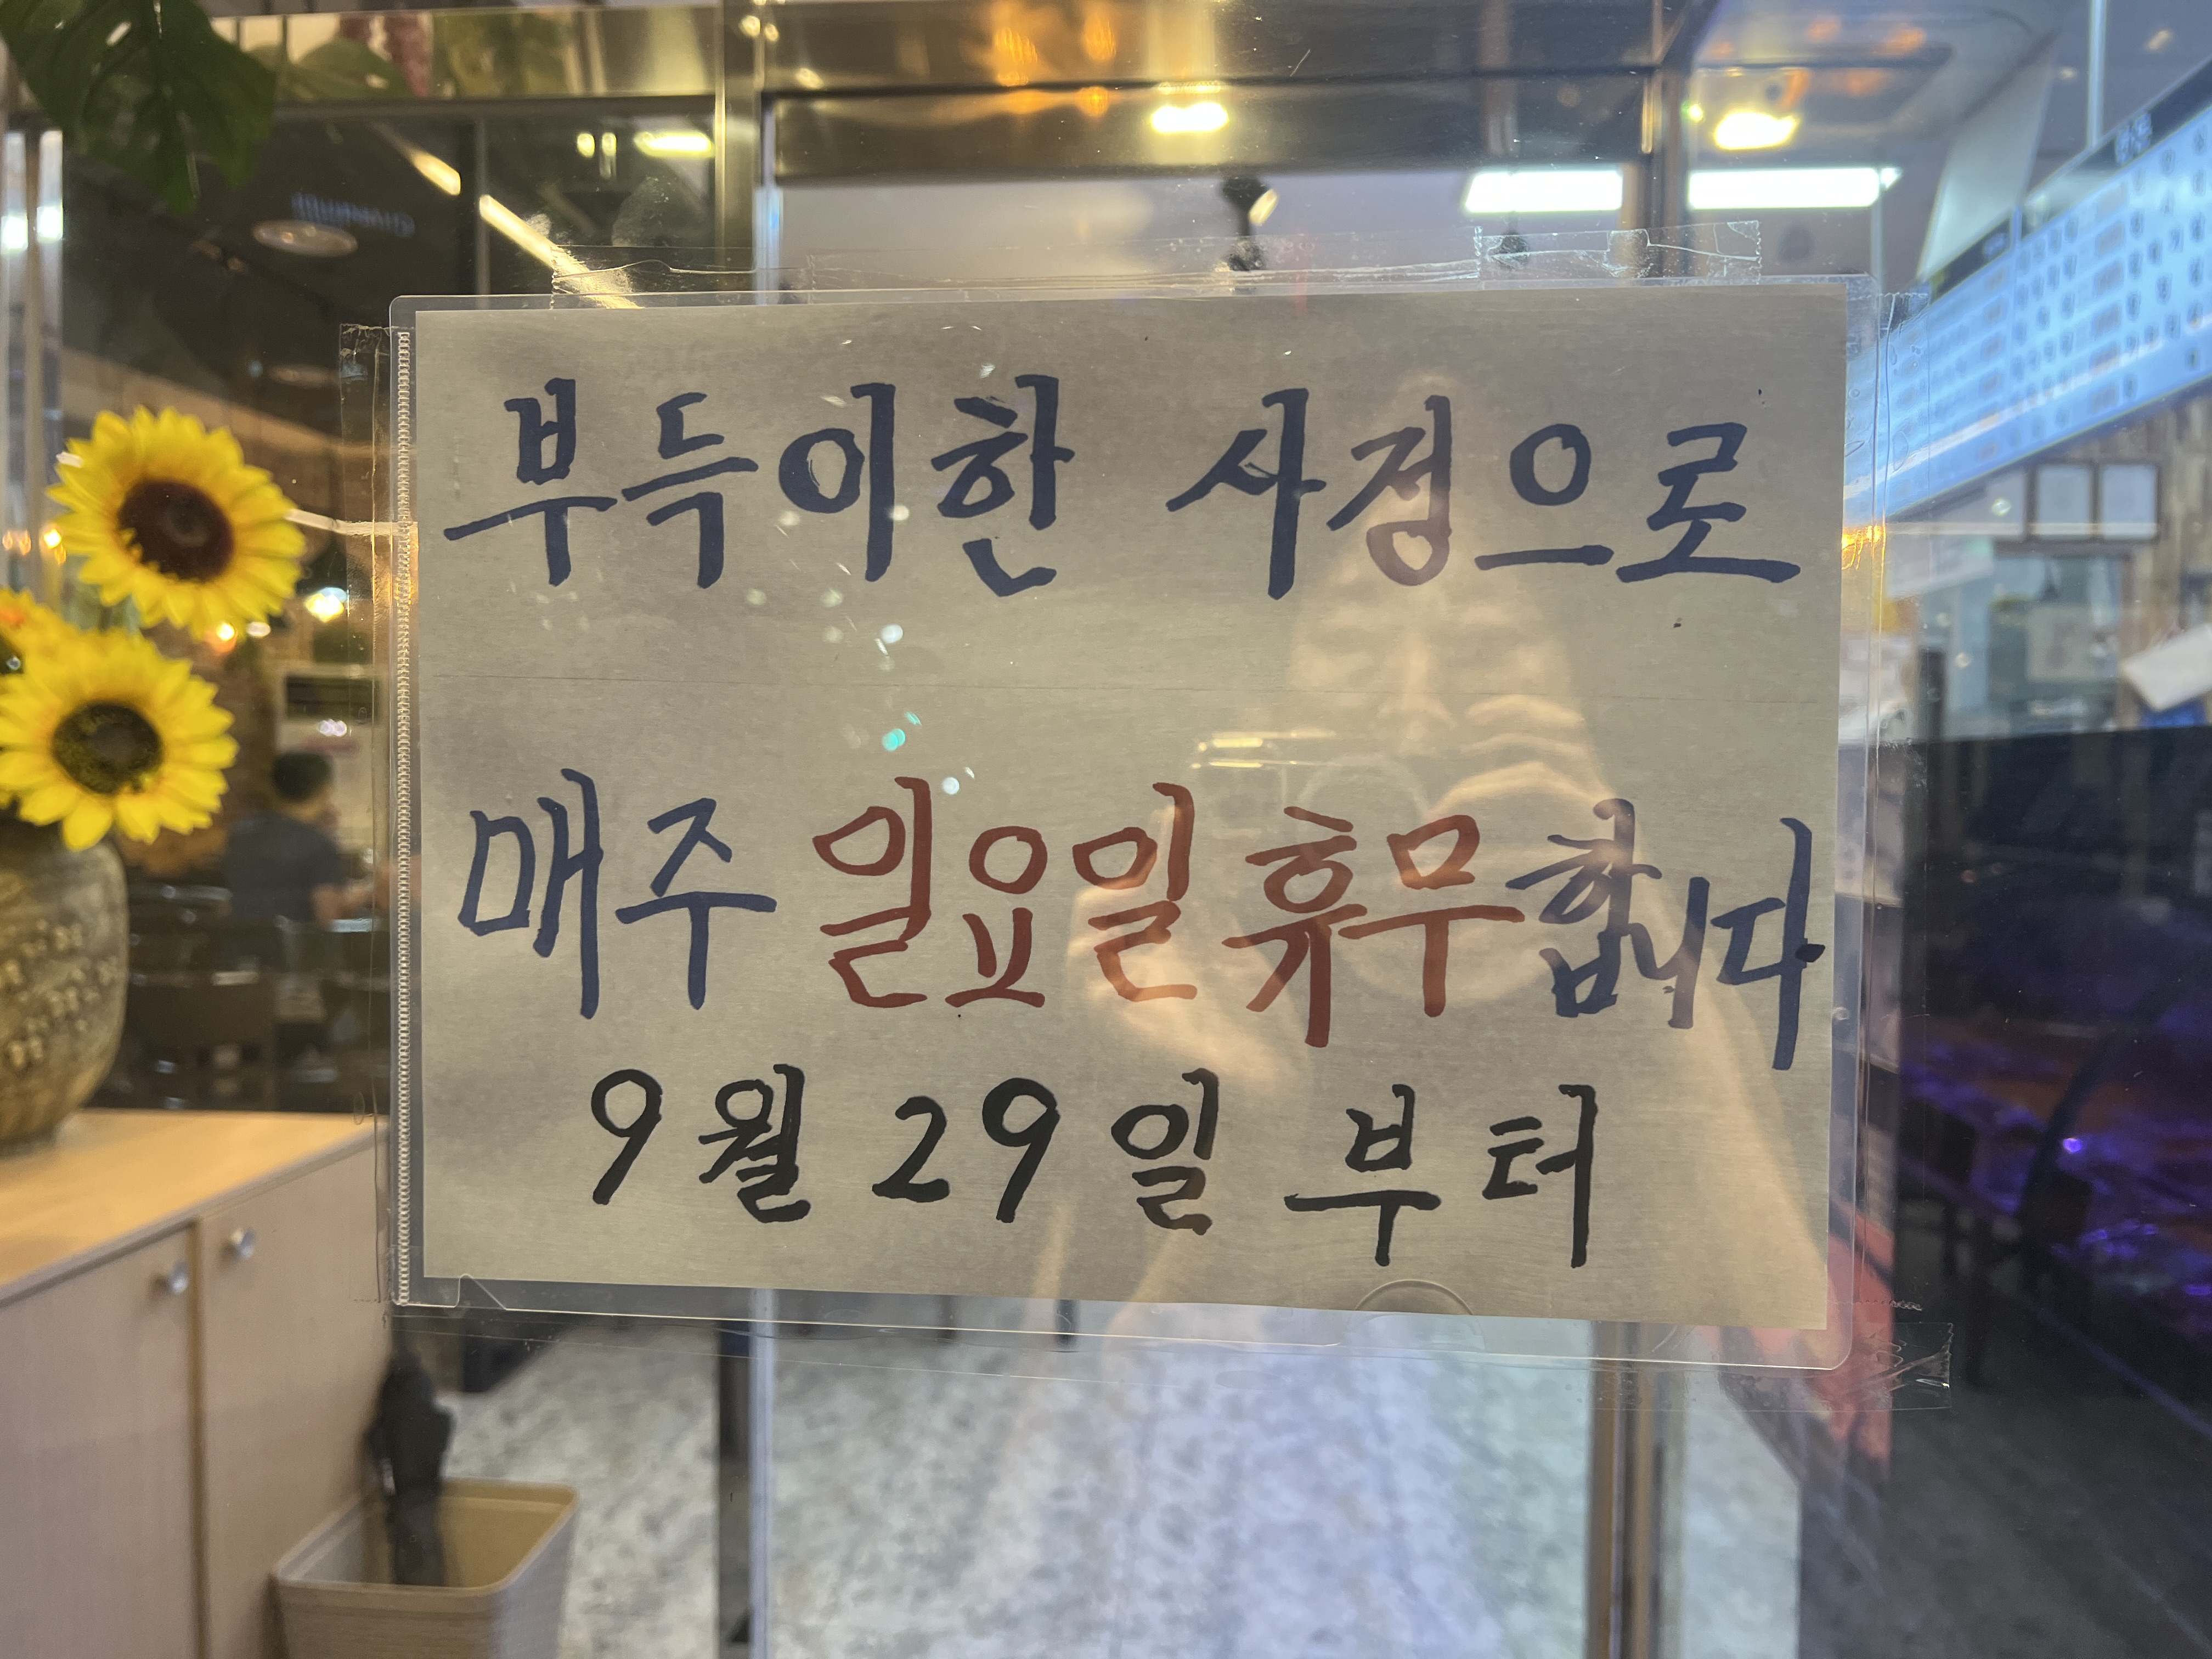 부득이한 사정으로
매주 일요일 휴무합니다
9월 29일 부터